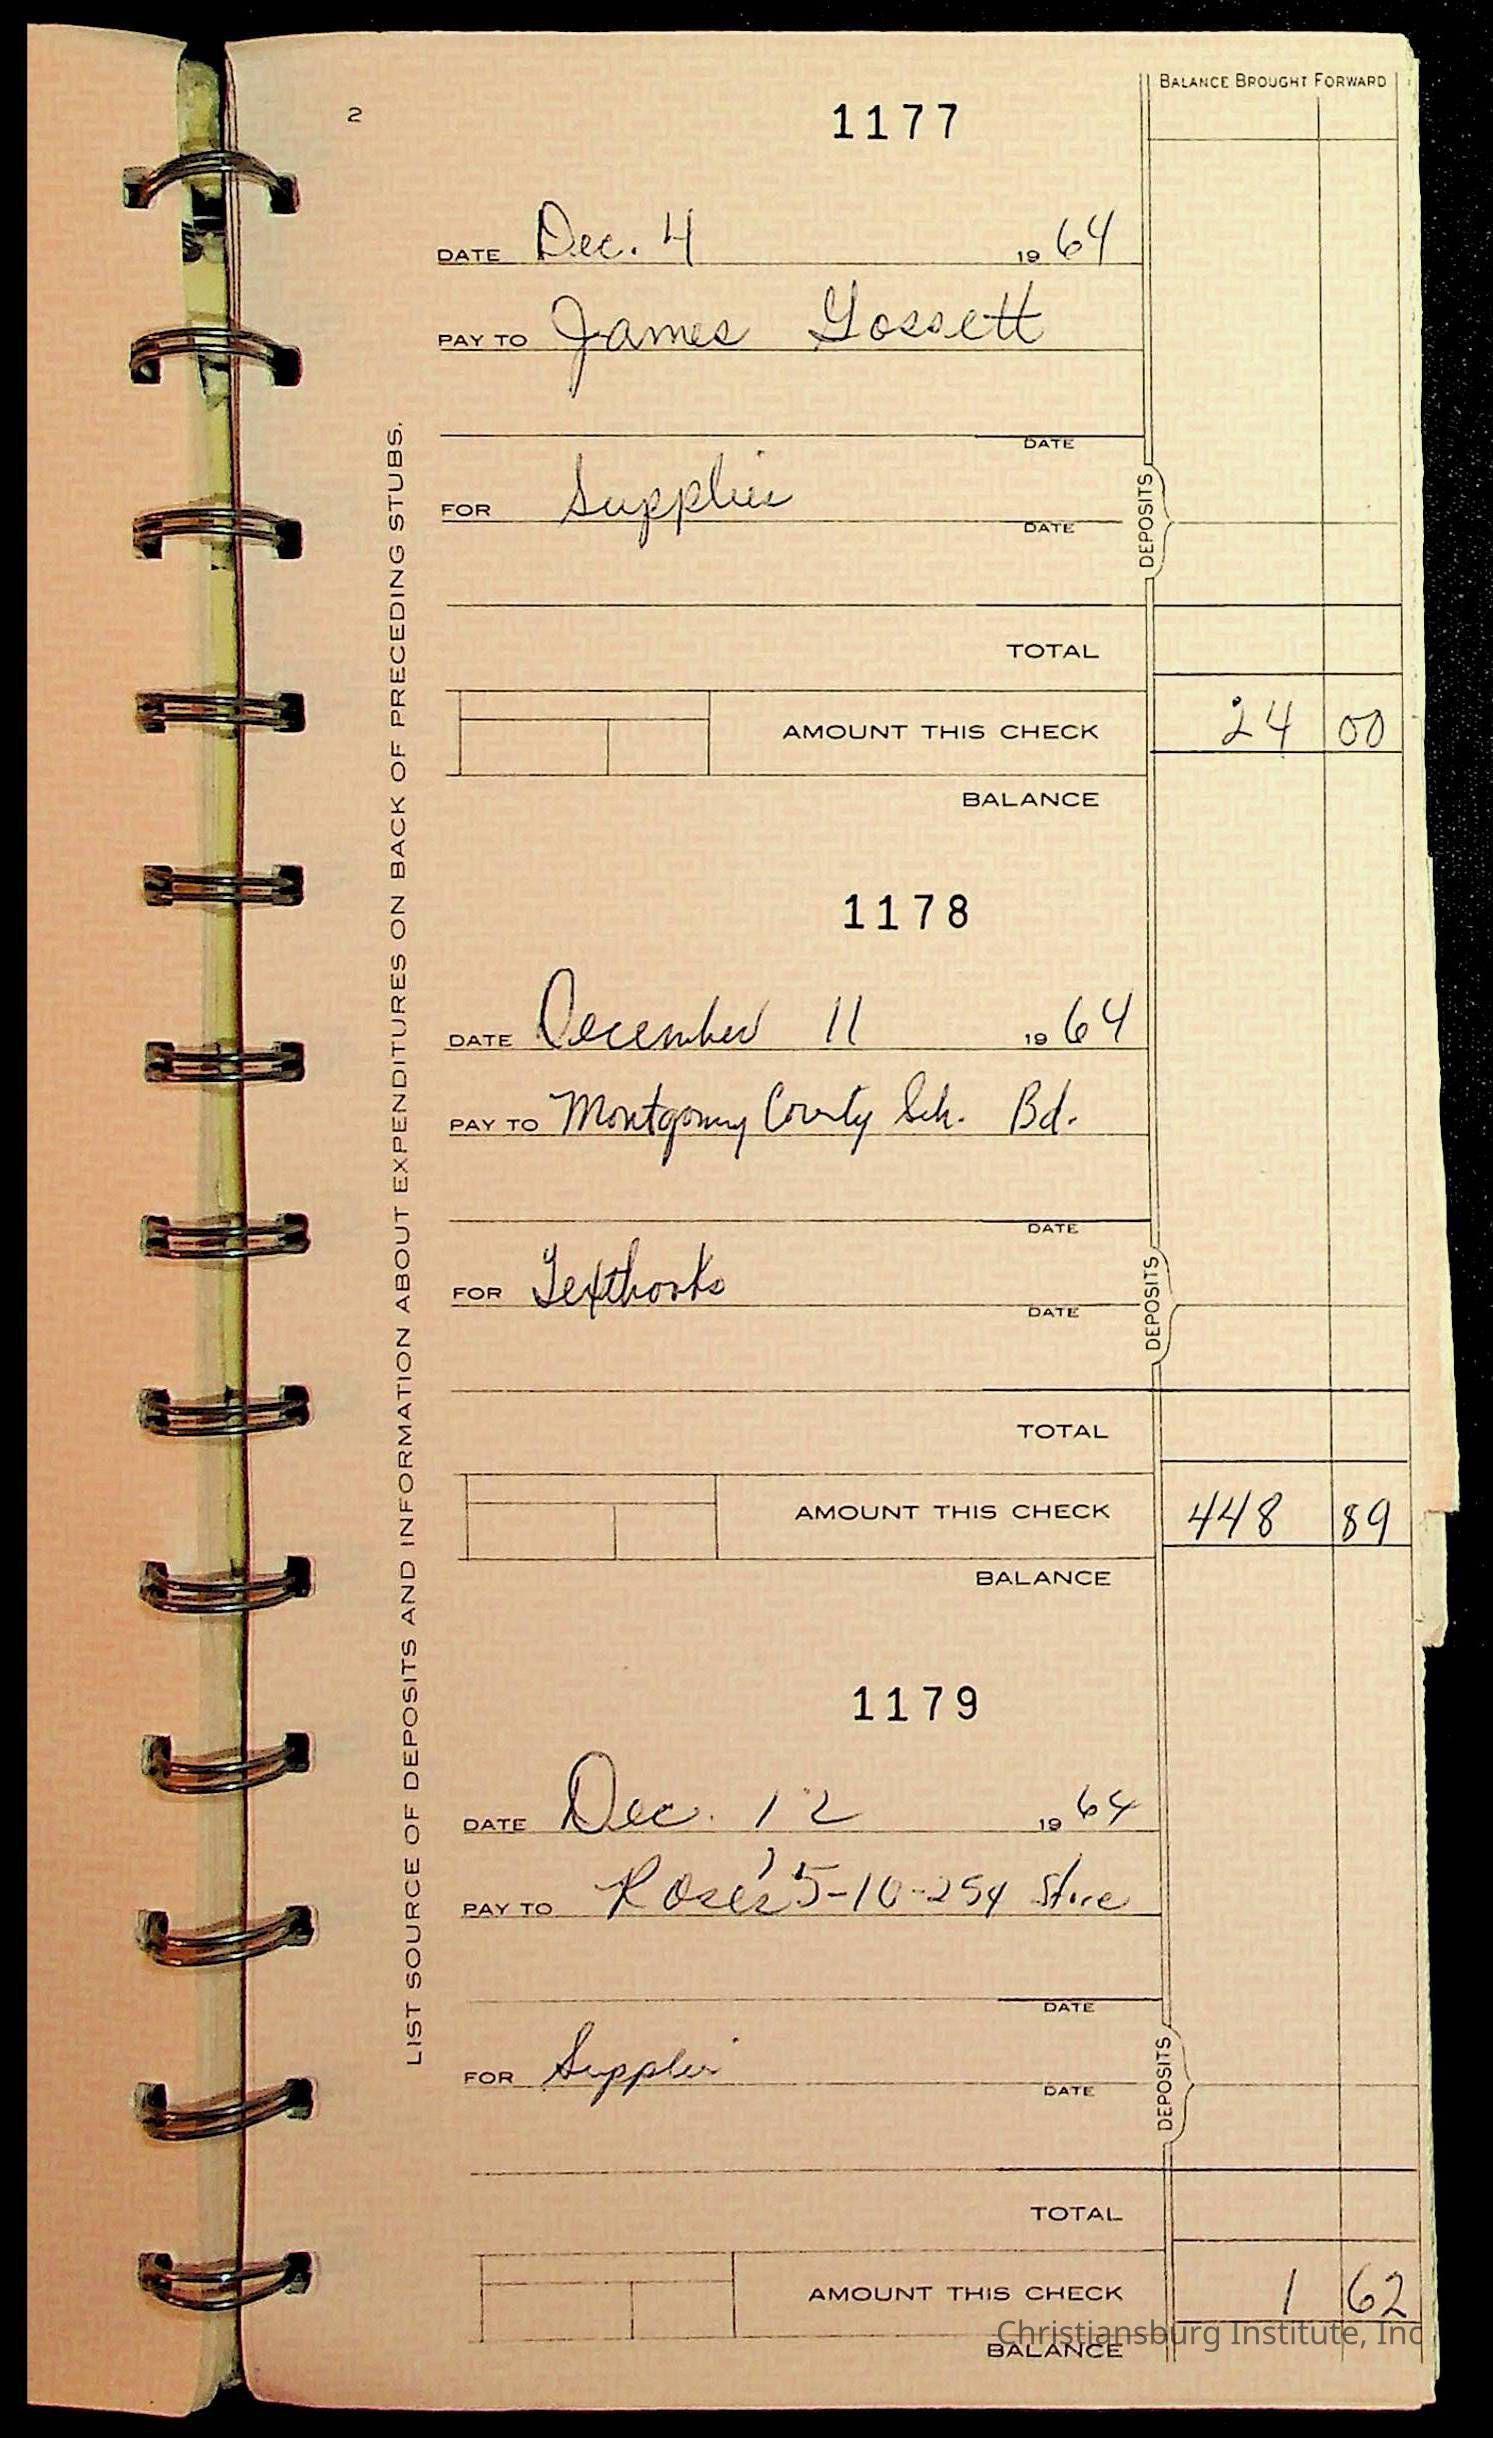 2
1177
BALANCE BROUGHT FORWARD
DATE Dec. 4 1964
PAY TO James Gossett
DATE
FOR Supplies
DATE
DEPOSITS
TOTAL
AMOUNT THIS CHECK 24 00
BALANCE
1178
DATE December 11 1964
PAY TO Montgomery County Sch. Bd.
DATE
FOR Textbooks
DATE
DEPOSITS
TOTAL
AMOUNT THIS CHECK 448 89
BALANCE
1179
DATE Dec. 12 1964
PAY TO Rose's 5-10-25¢ Store
DATE
FOR Supplies
DATE
DEPOSITS
TOTAL
AMOUNT THIS CHECK 1 62
BALANCE
LIST SOURCE OF DEPOSITS AND INFORMATION ABOUT EXPENDITURES ON BACK OF PRECEDING STUBS.
Christiansburg Institute, Inc